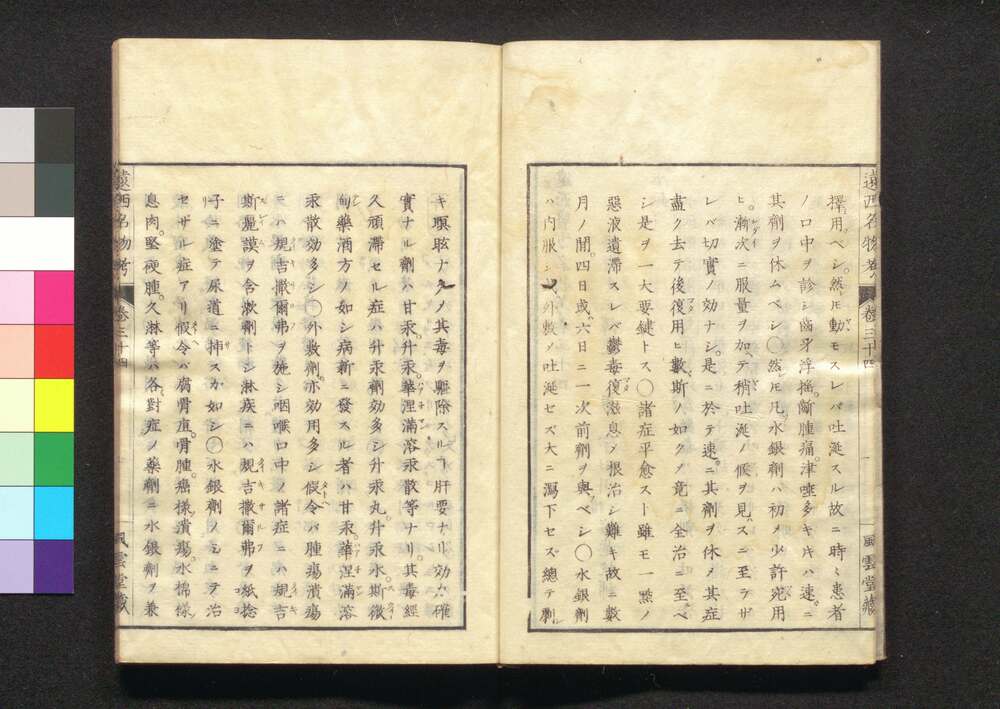 遠西名物考 卷三十四 一 風雲堂藏
擇用ベシ。然𪜈動モスレバ吐涎スル故ニ時々患者
ノ口中ヲ診シ齒牙浮搖。齗腫痛。津唾多キキハ速ニ
其劑ヲ休ムベシ〇然𪜈凡水銀劑ハ初メ少許宛用
ヒ漸次ニ服量ヲ加ヘテ稍吐涎ノ候ヲ見スニ至ラザ
レバ切實ノ効ナシ。是ニ於テ速ニ其劑ヲ休メ其症
盡ク去テ後復用ヒ數斯ノ如クノ竟ニ全治ニ至ベ
シ是ヲ一大要鍵トス〇諸症平愈スト雖モ一㸃ノ
惡液遺滯スレバ鬱毒復滋息ノ根治シ難キ故ニ數
月ノ間。四日或六日ニ一次前劑ヲ與ベシ〇水銀劑
ハ内服シ外敷ノ吐涎セズ大ニ瀉下セズ總テ劇
キ瞑眩ナクノ其毒ヲ驅除スルヿ肝要ナリ効力確
實ナル劑ハ甘汞升汞。華涅滿溶汞散等ナリ。其毒經
久頑滯セル症ハ升汞劑効多シ升汞丸。升汞水。斯微
甸藥酒方ノ如シ病新ニ發スル者ハ甘汞。華涅滿溶
汞散効多シ〇外敷劑。亦効用多シ假令バ腫瘍潰瘍
ニハ規吉撒爾弗ヲ施シ咽喉口中ノ諸症ニハ規吉
斯麗謨ヲ含漱劑トシ淋疾ニハ規吉撒爾弗ヲ紙捻
子ニ塗テ尿道ニ挿スカ如シ〇水銀劑ノミニテ治
セザル症アリ假令バ腐骨疽。骨腫。癌樣潰瘍。水棉樣
息肉。堅硬腫。久淋等ハ各對症ノ藥劑ニ水銀劑ヲ兼
遠西名物考 卷三十四 風雲堂藏